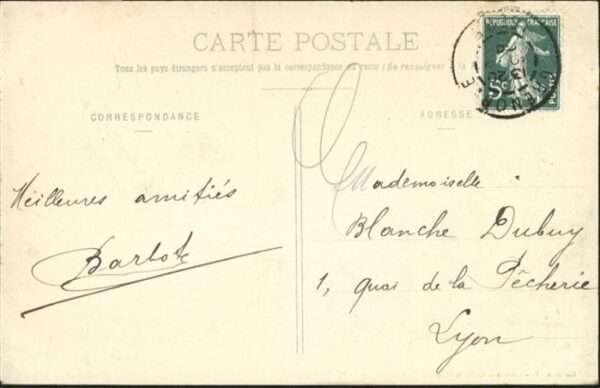 CARTE POSTALE
Tous les pays étrangers n'acceptent pas la correspondance au recto (Se renseigner à la
CORRESPONDANCE
ADRESSE
RÉPUBLIQUE FRANÇAISE
5c
POSTES
Meilleures amitiés
Barbote
Mademoiselle
Blanche Dubuy
1, Quai de la Pêcherie
Lyon